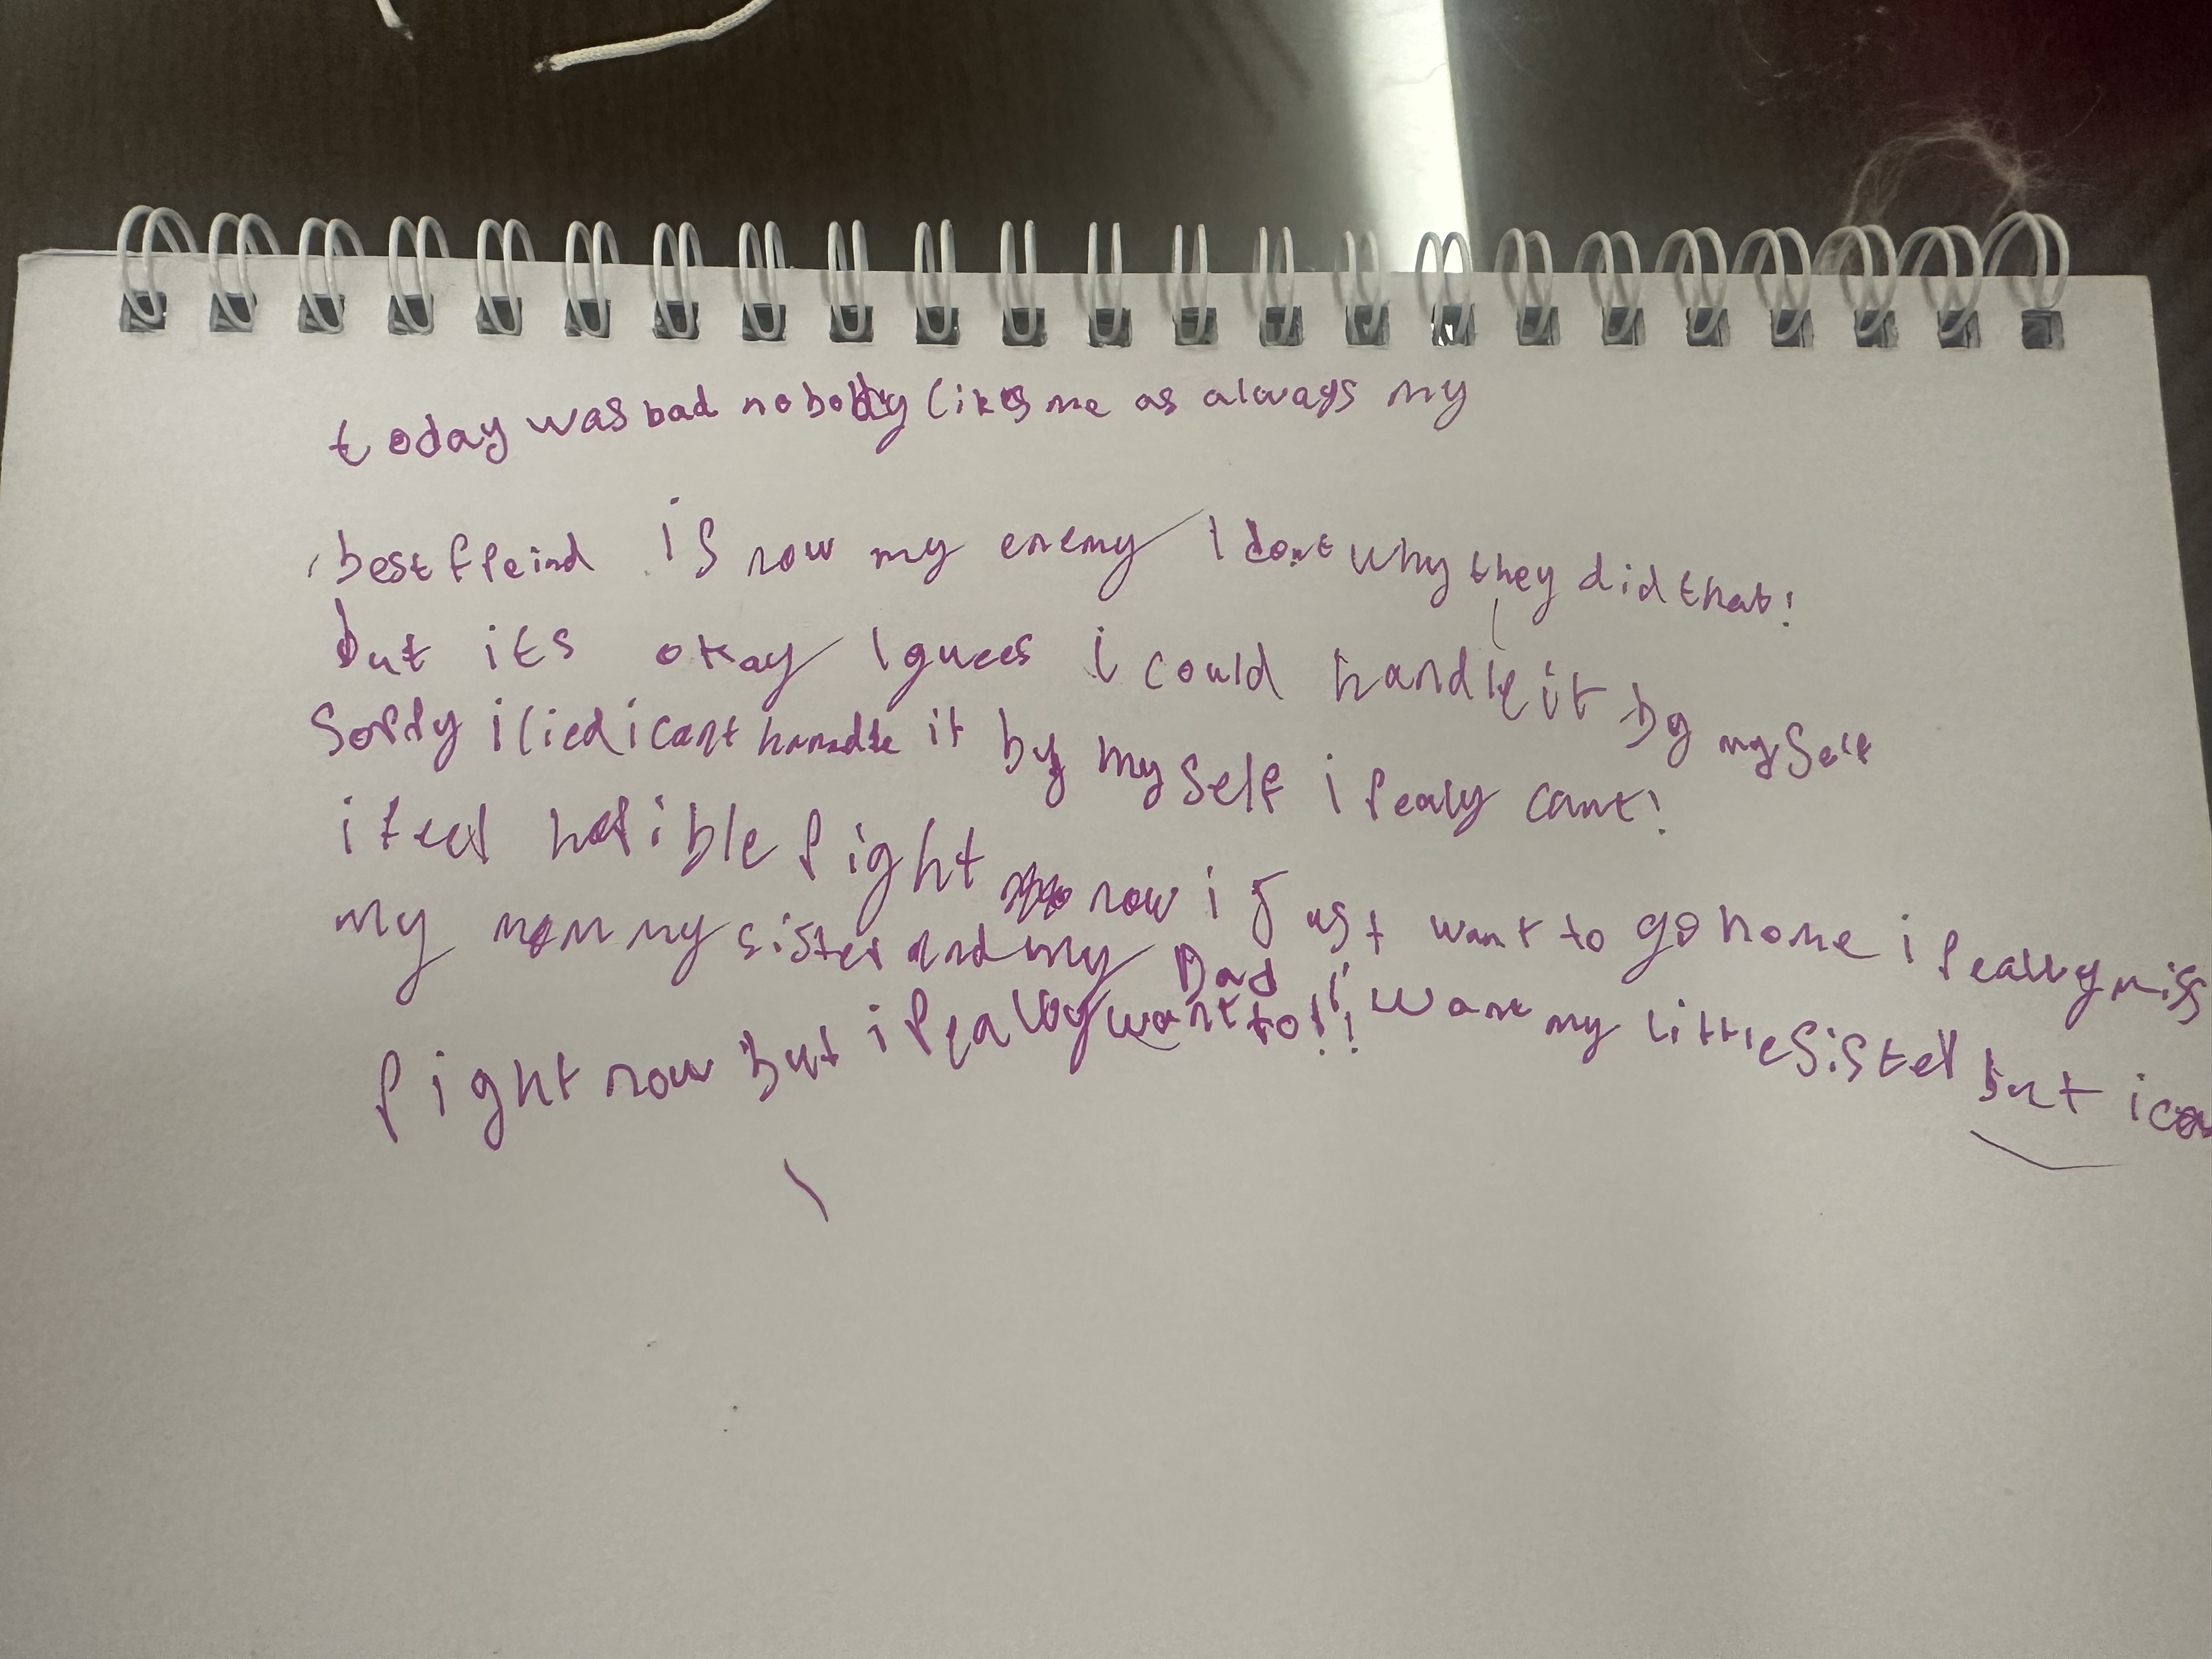 today was bad nobody likes me as always my
best freind is now my enemy I dont why they did that!
but its okay I guees i could handle it by myself
Sorry i lied i cant handle it by my self i realy cant!
i feel horible right now i just want to go home i really miss
my mommy sister and my Dad! i want my little sister but i can
right now but i really want to!!